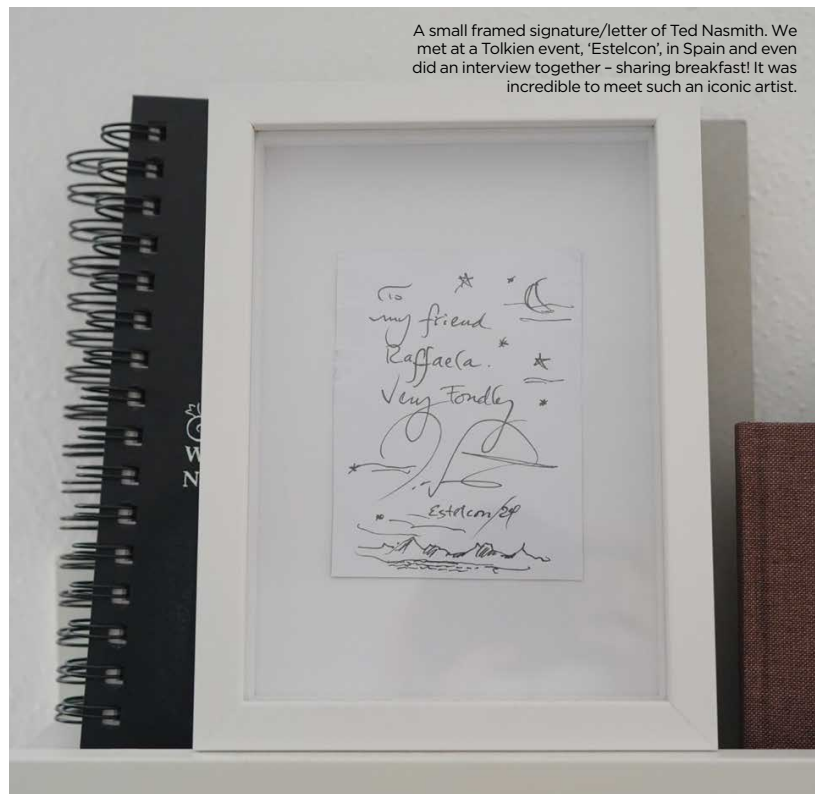 A small framed signature/letter of Ted Nasmith. We
met at a Tolkien event, ‘Estelcon’, in Spain and even
did an interview together – sharing breakfast! It was
incredible to meet such an iconic artist.
To
my friend
Raffaela.
Very Fondly
Estelcon/24
W
N